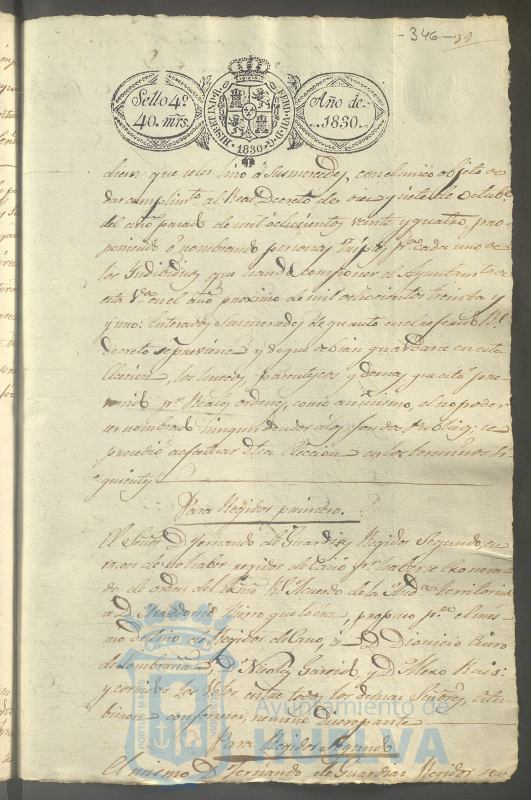 - 346 - 39
Sello 4º
40. mrs.
HISP. ET IND. R.
FERD. VII. D. G.
1830
Año de
1830.
que se les hizo á Sus mercedes, con el unico objeto de
dar cumplimto. al Real Decreto de diez y siete de Octube.
del año pasado de mil ochocientos veinte y quatro, pro
poniendo ó nombrando personas triples pa. cada uno de
los Individuos que han de componer el Ayuntamto. de
esta Va. en el año proximo de mil ochocientos treinta y
uno: Enterados Sus mercedes de quanto en el referido Rl.
decreto se previene y de que debian guardarse en esta
Eleccion, los huecos, parentescos, y demas que está pre
venido pr. Reales ordenes, como asimismo, el no poder
ser nombrado ningun deudor á los fondos Publicos; se
procedió a efectuar dha. Eleccion en los terminos si
guientes
Para Regidor primero.
El Señor D. Fernando de Guardias Regidor Segundo, en
razon de no haber regidor decano pr. haberse exonera
do de orden del Rl. Acuerdo de la Auda. Territorial
á D. que lo era, propuso pa. el mis
mo destino de Regidor decano, á D. Dionicio Quero
de Lombraña D. Nicolas Garrido, y D. Alexo Ruis:
y corridos los votos entre todos los demas Señores, estu
bieron conformes, nemine discrepante
Para Regidor Segundo
El mismo D. Fernando de Guardias Regidor
Ayuntamiento de
HUELVA
PORTUS MARIS